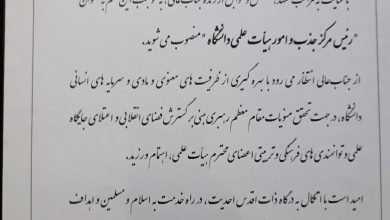 با عنایت به مراتب تعهد، تخصص و تجارب ارزنده جناب عالی، به موجب این حکم به عنوان
"رئیس مرکز جذب و امور هیأت علمی دانشگاه" منصوب می شوید.
از جناب عالی انتظار می رود با بهره گیری از ظرفیت های معنوی و مادی و سرمایه های انسانی
دانشگاه، در جهت تحقق منویات مقام معظم رهبری مبنی بر گسترش فضای انقلابی و اعتلای جایگاه
علمی و توانمندی های فرهنگی و تربیتی اعضای محترم هیأت علمی، اهتمام ورزید.
امید است با اتکال به درگاه ذات اقدس احدیت، در راه خدمت به اسلام و مسلمین و اهداف